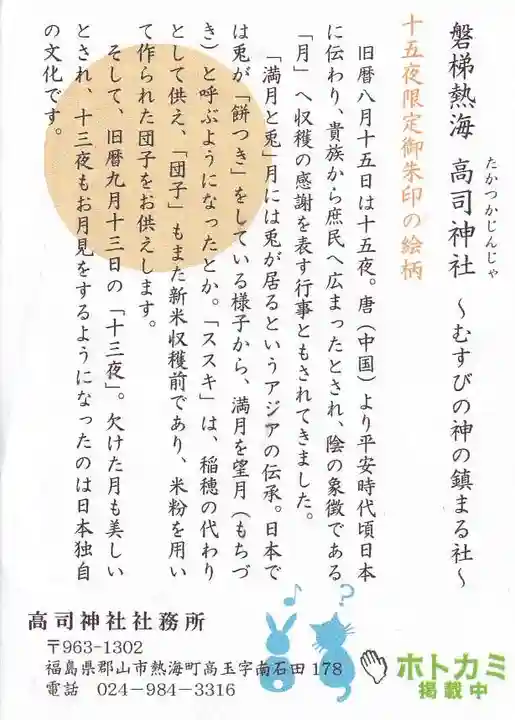 磐梯熱海 高司神社 ~むすびの神の鎮まる社~
たかつかじんじゃ
十五夜限定御朱印の絵柄
旧暦八月十五日は十五夜。唐(中国)より平安時代頃日本
に伝わり、貴族から庶民へ広まったとされ、陰の象徴である
「月」へ収穫の感謝を表す行事ともされてきました。
「満月と兎」月には兎が居るというアジアの伝承。日本で
は兎が「餅つき」をしている様子から、満月を望月(もちづ
き)と呼ぶようになったとか。「ススキ」は、稲穂の代わり
として供え、「団子」もまた新米収穫前であり、米粉を用い
て作られた団子をお供えします。
そして、旧暦九月十三日の「十三夜」。欠けた月も美しい
とされ、十三夜もお月見をするようになったのは日本独自
の文化です。
高司神社社務所
〒963-1302
福島県郡山市熱海町高玉字南石田178
電話 024-984-3316
♪
?
ホトカミ
掲載中